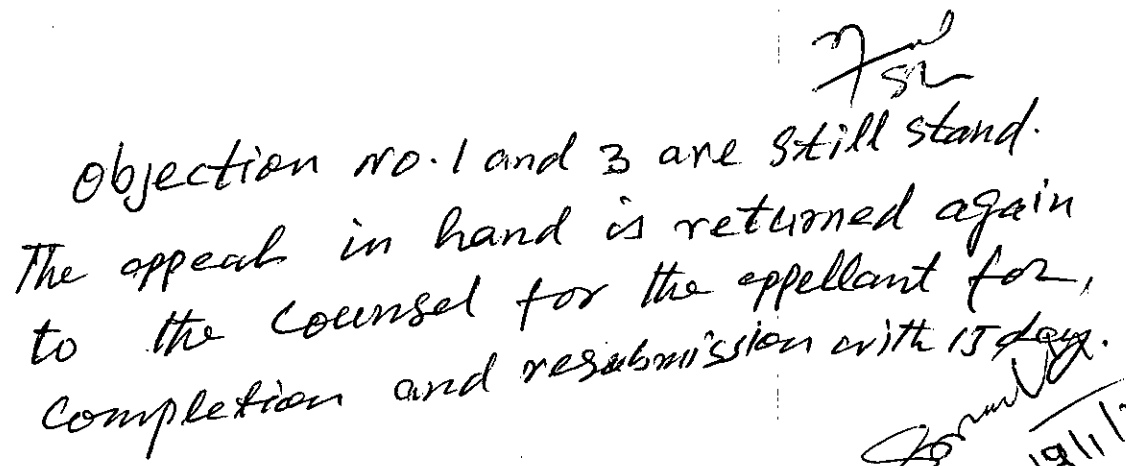 Objection No. 1 and 3 are still stand.
The appeal in hand is returned again
to the Counsel for the appellant for,
Completion and resubmission with 15 day.
19/1/